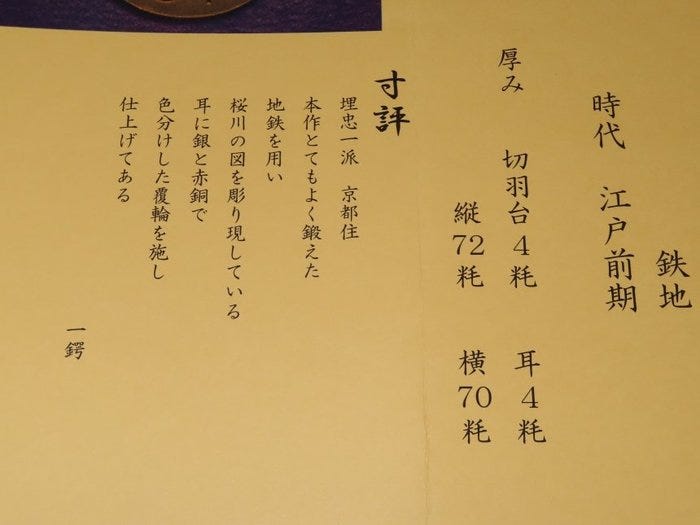 鉄地
時代 江戸前期
厚み 切羽台4粍 耳4粍
縦72粍 横70粍
寸評
埋忠一派 京都住
本作とてもよく鍛えた
地鉄を用い
桜川の図を彫り現している
耳に銀と赤銅で
色分けした覆輪を施し
仕上げてある
一鍔